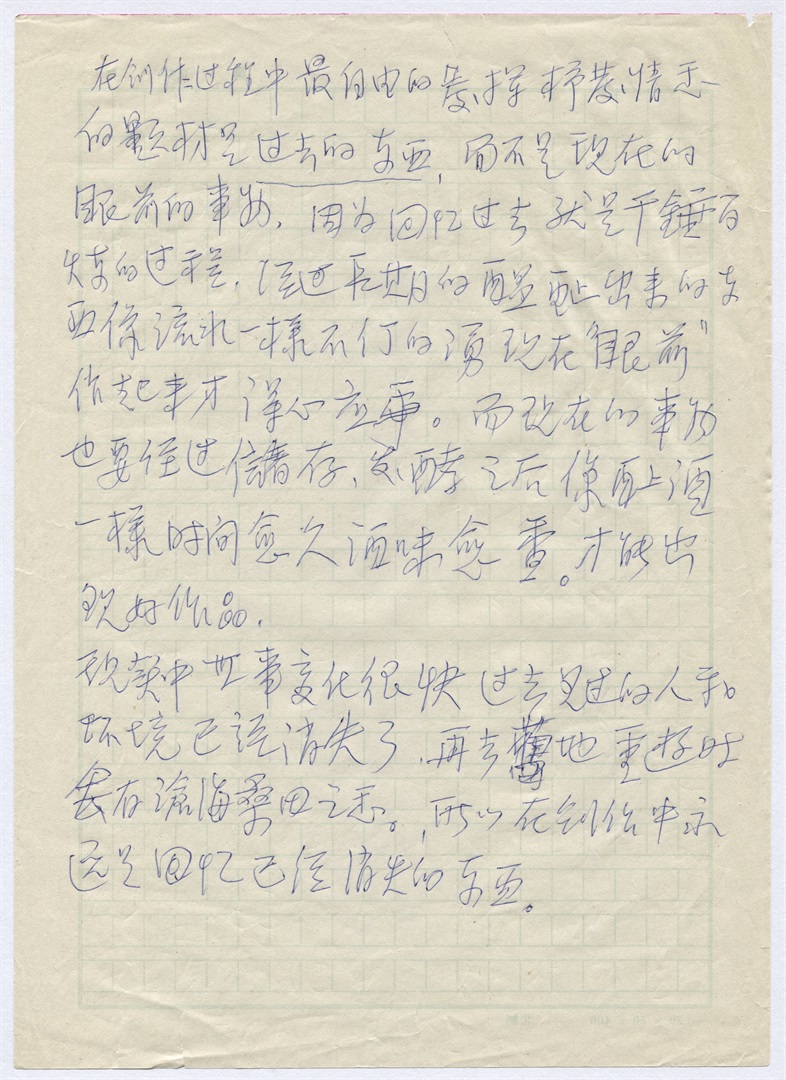 在创作过程中最自由的發挥抒發情感
的题材是过去的东西，而不是现在的
眼前的事物，因为回忆过去就是千錘百
炼的过程，经过长期的醖酿出来的东
西像流水一樣不停的湧现在“眼前”
作起来才得心应手。而现在的事物
也要经过儲存、发酵之后像酿酒
一樣时间愈久酒味愈香。才能出
现好作品．
现实中世事变化很快过去见过的人和
环境已经消失了．再去舊地重游时
会有滄海桑田之感。，所以在创作中永
远是回忆已经消失的东西。